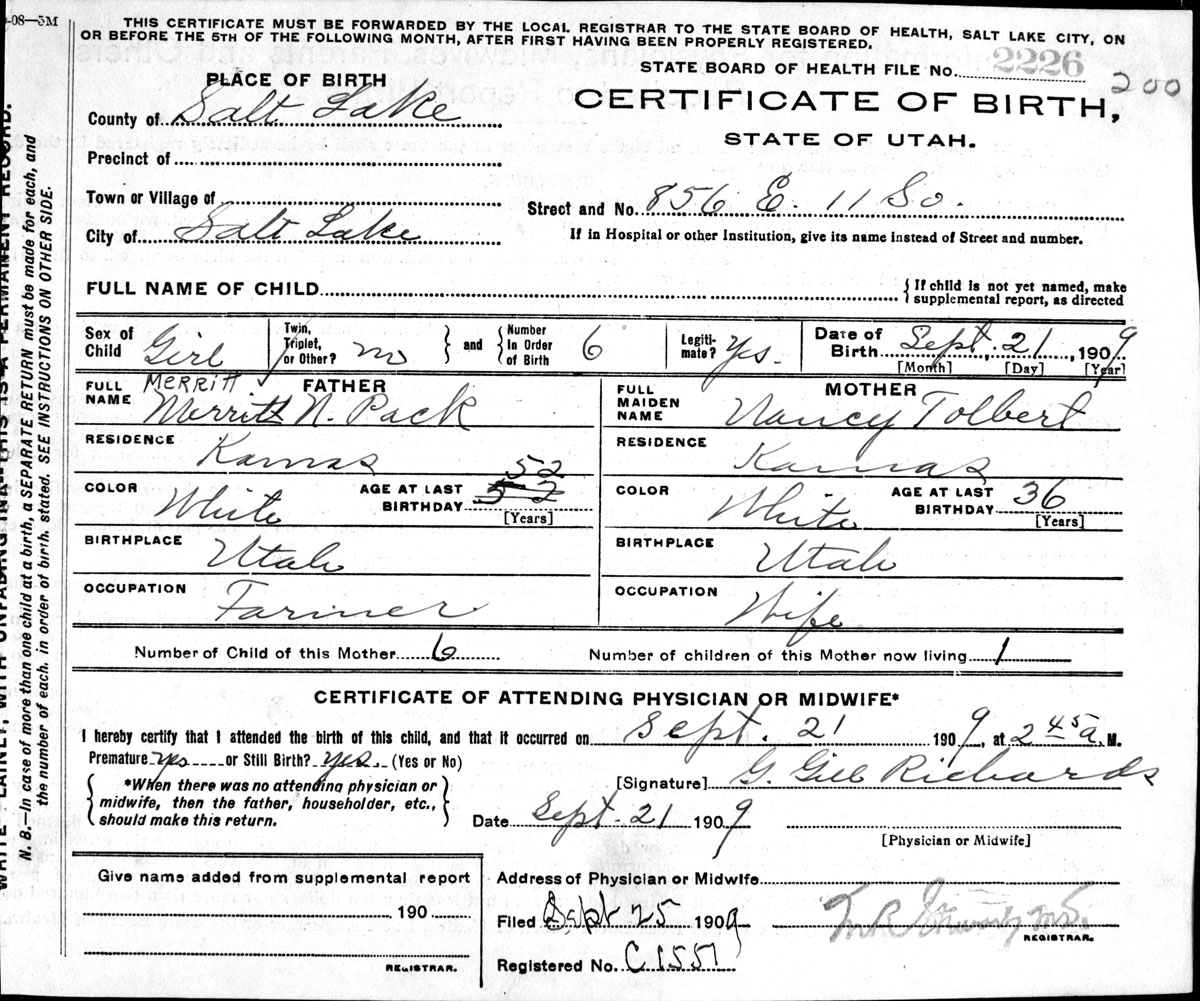 -08—5M
THIS CERTIFICATE MUST BE FORWARDED BY THE LOCAL REGISTRAR TO THE STATE BOARD OF HEALTH, SALT LAKE CITY, ON
OR BEFORE THE 5TH OF THE FOLLOWING MONTH, AFTER FIRST HAVING BEEN PROPERLY REGISTERED.
STATE BOARD OF HEALTH FILE NO. 2226
200
PLACE OF BIRTH
CERTIFICATE OF BIRTH,
STATE OF UTAH.
County of Salt Lake
Precinct of
Town or Village of
Street and No. 856 E. 11 So.
City of Salt Lake
If in Hospital or other Institution, give its name instead of Street and number.
FULL NAME OF CHILD
{If child is not yet named, make
supplemental report, as directed
Sex of Child Girl
Twin, Triplet, or Other? no
and
Number In Order of Birth 6
Legitimate? Yes.
Date of Birth Sept. 21, 1909
[Month] [Day] [Year]
FATHER
FULL NAME Merritt
Merritt N. Pack
RESIDENCE Kamas
COLOR White
AGE AT LAST BIRTHDAY 52
[Years]
BIRTHPLACE Utah
OCCUPATION Farmer
MOTHER
FULL MAIDEN NAME Nancy Tolbert
RESIDENCE Kamas
COLOR White
AGE AT LAST BIRTHDAY 36
[Years]
BIRTHPLACE Utah
OCCUPATION Wife
Number of Child of this Mother 6
Number of children of this Mother now living 1
CERTIFICATE OF ATTENDING PHYSICIAN OR MIDWIFE*
I hereby certify that I attended the birth of this child, and that it occurred on Sept. 21 1909, at 2 45 a. M.
Premature yes or Still Birth? yes. (Yes or No)
[Signature] G. Gill Richards
*When there was no attending physician or
midwife, then the father, householder, etc.,
should make this return.
Date Sept. 21 1909
[Physician or Midwife]
Give name added from supplemental report
190
REGISTRAR.
Address of Physician or Midwife
Filed Sept 25 1909
REGISTRAR.
Registered No. C1551
N. B.—In case of more than one child at a birth, a SEPARATE RETURN must be made for each, and
the number of each, in order of birth, stated. SEE INSTRUCTIONS ON OTHER SIDE.
WRITE PLAINLY, WITH UNFADING INK—THIS IS A PERMANENT RECORD.